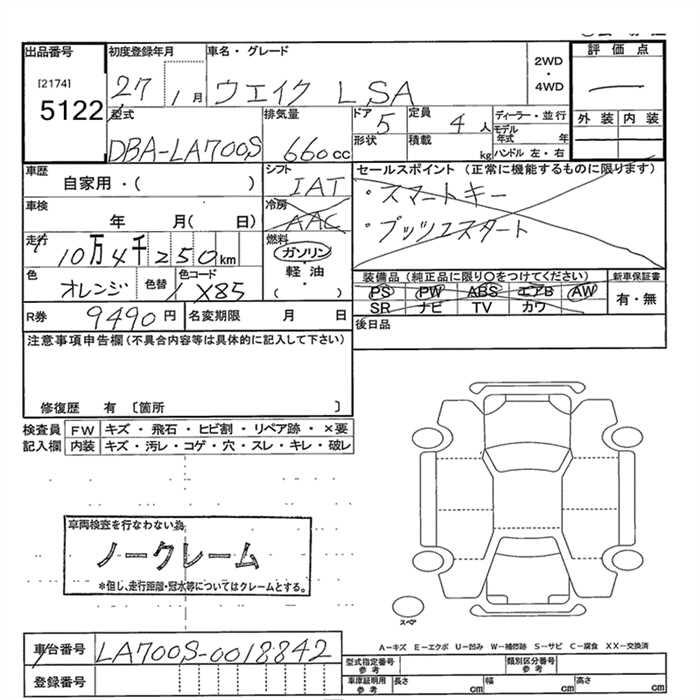 出品番号 初度登録年月 車名・グレード 評価点
[2174] 2WD
5122 27 1月 ウエイク LSA ・4WD
外装 内装
型式 排気量 ドア 5 定員 4人 ディーラー・並行
DBA-LA700S 660cc 形状 積載 kg モデル年式 年
ハンドル 左・右
車歴 シフト セールスポイント (正常に機能するものに限ります)
自家用・( ) IAT ・スマートキー
車検 冷房 ・プッシュスタート
年 月( 日) AAC
走行 燃料
10万4千250km ガソリン
色 色替 色コード 軽油 装備品 (純正品に限り○をつけてください) 新車保証書
オレンジ X85 ・( ) PS PW ABS エアB AW 有・無
SR ナビ TV カワ
R券 9490円 名変期限 月 日 後日品
注意事項申告欄(不具合内容等は具体的に記入して下さい)
修復歴 有 〔箇所 〕
検査員 FW キズ・飛石・ヒビ割・リペア跡・×要
記入欄 内装 キズ・汚レ・コゲ・穴・スレ・キレ・破レ
車両検査を行なわない為
ノークレーム
*但し、走行距離・冠水等についてはクレームとする。
スペア
A-キズ E-エクボ U-凹み W-補修跡 S-サビ C-腐食 XX-交換済
車台番号 LA700S-0018842
型式指定番号 参考 類別区分番号 参考
登録番号 車庫証明用 参考 長さ cm 幅 cm 高さ cm